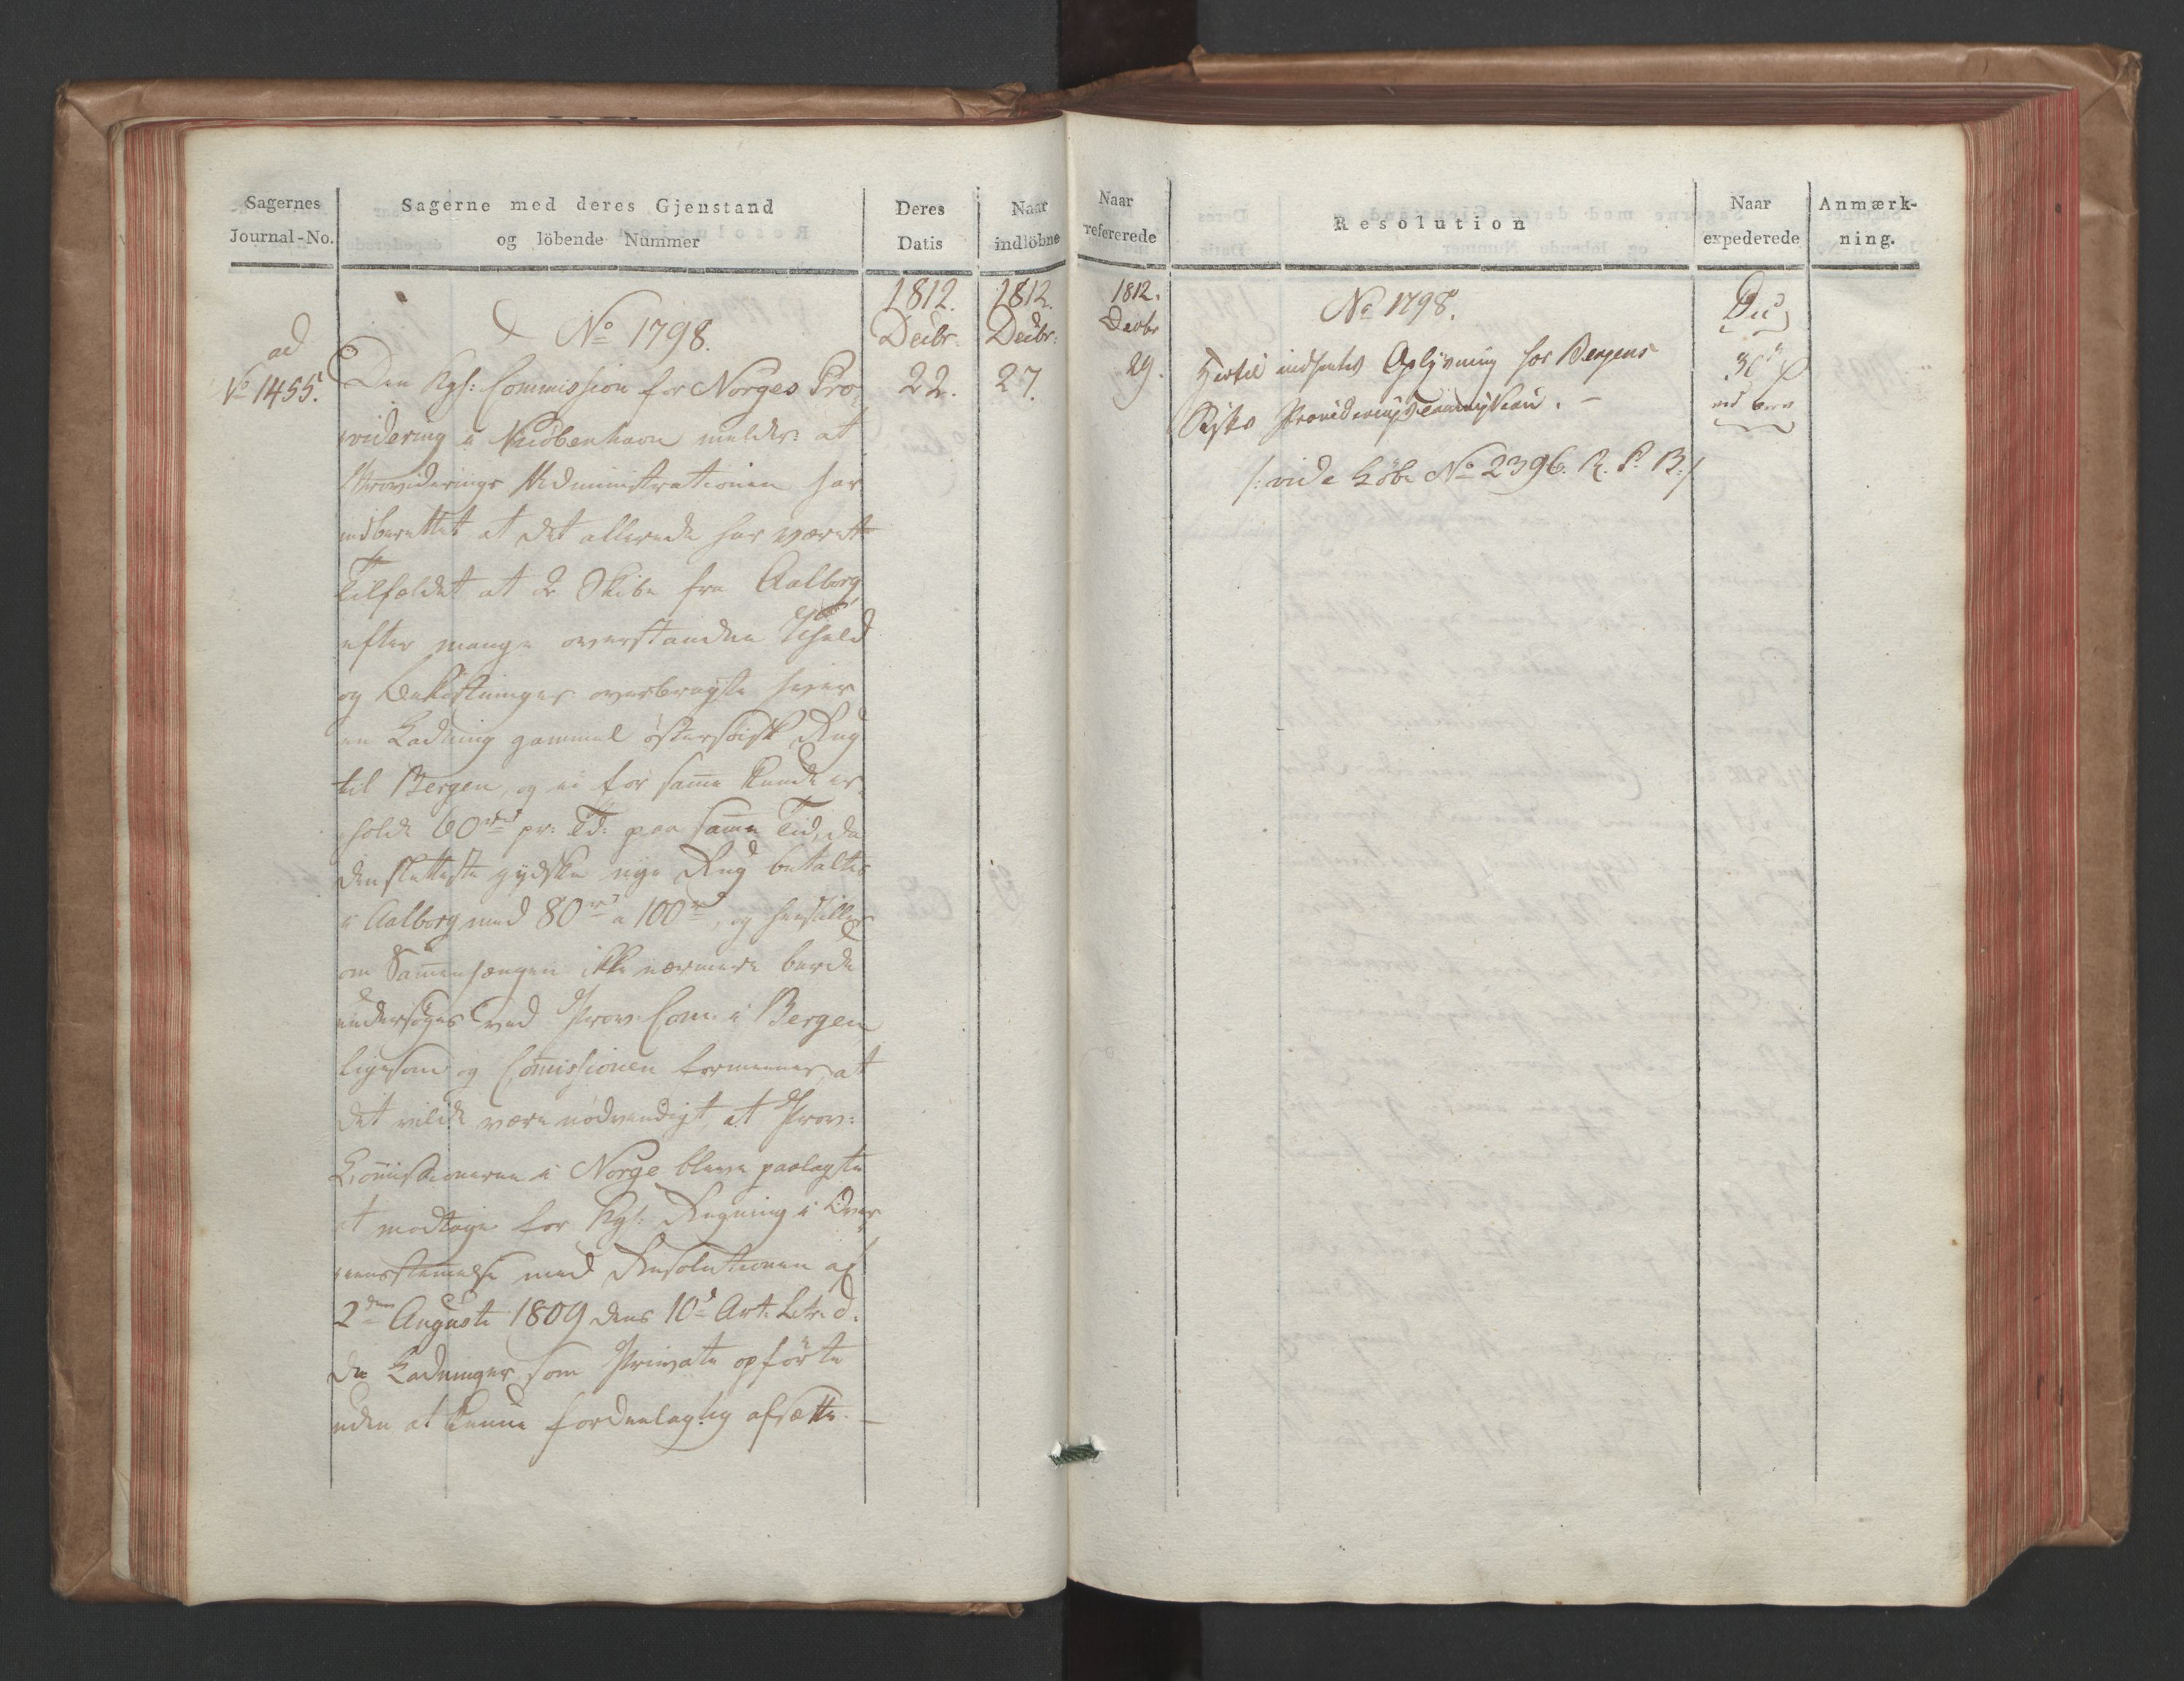 Sagernes
Journal-No.
Sagerne med deres Gjenstand
og löbende Nummer
Deres
Datis
Naar
indlöbne
1812.
Decbr.
1812.
Decbr.
No 1798.
ad
No 1455.
Den Kgl: Commission for Norges Pro-
22.
27.
videring i Kiöbenhavn melder at
Provideringsadministrationen har
indberettet at det allerede har været
Tilfældet at 2 Skibe fra Aalborg
efter mange overstandne Uheld
og Bekostninger overbragte hver
en Ladning gammel östersöisk Rug
til Bergen, og ei for samme kunde er-
holde 60 rd pr: Td: paa samme Tid, da
den sletteste jydske nye Rug betaltes
i Aalborg med 80 rd a 100 rd, og henstilles
om Sammenhængen ikke nærmere burde
undersöges ved Prov: Com: i Bergen
ligesom og Commissionen formener, at
det vilde være nödvendigt, at Prov:
Commissionerne i Norge bleve paalagte
at modtage for Kgl: Regning i Over-
eensstemmelse med Resolutionen af
2den Augusti 1809 dens 10de Art: Litr. d.
de Ladninger som Private opförte
uden at kunne fordeelagtig afsætte. —
Naar
refererede
Resolution
Naar
expederede
Anmærk-
ning.
1812.
Decbr
29.
No 1798.
Hertil indhentes Oplysning hos Bergens
Stifts Provideringscommission. —
/: vide Löbe No 2396. R. P. B. :/
Du
30
ved Brev